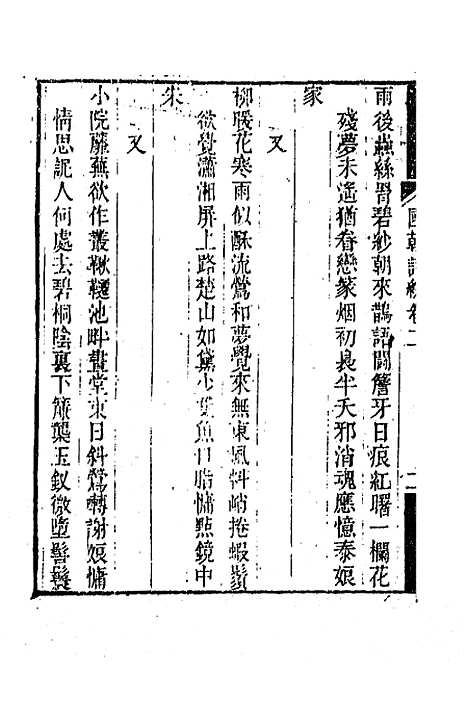 國朝詞綜卷二
二
雨後蟲絲罥碧紗朝來鵲語鬭簷牙日痕紅曙一欄花
殘夢未遥猶眷戀篆烟初裊半夭邪消魂應憶泰娘
家
又
柳暖花寒雨似酥流鶯和夢覺來無東風料峭捲蝦鬚
欲覺瀟湘屏上路楚山如黛少雙魚口脂慵點鏡中
朱
又
小院蘼蕪欲作叢鞦韆池畔畫堂東日斜鶯囀謝娘慵
情思人何處去碧桐陰裏下簾櫳玉釵微墮髻鬟